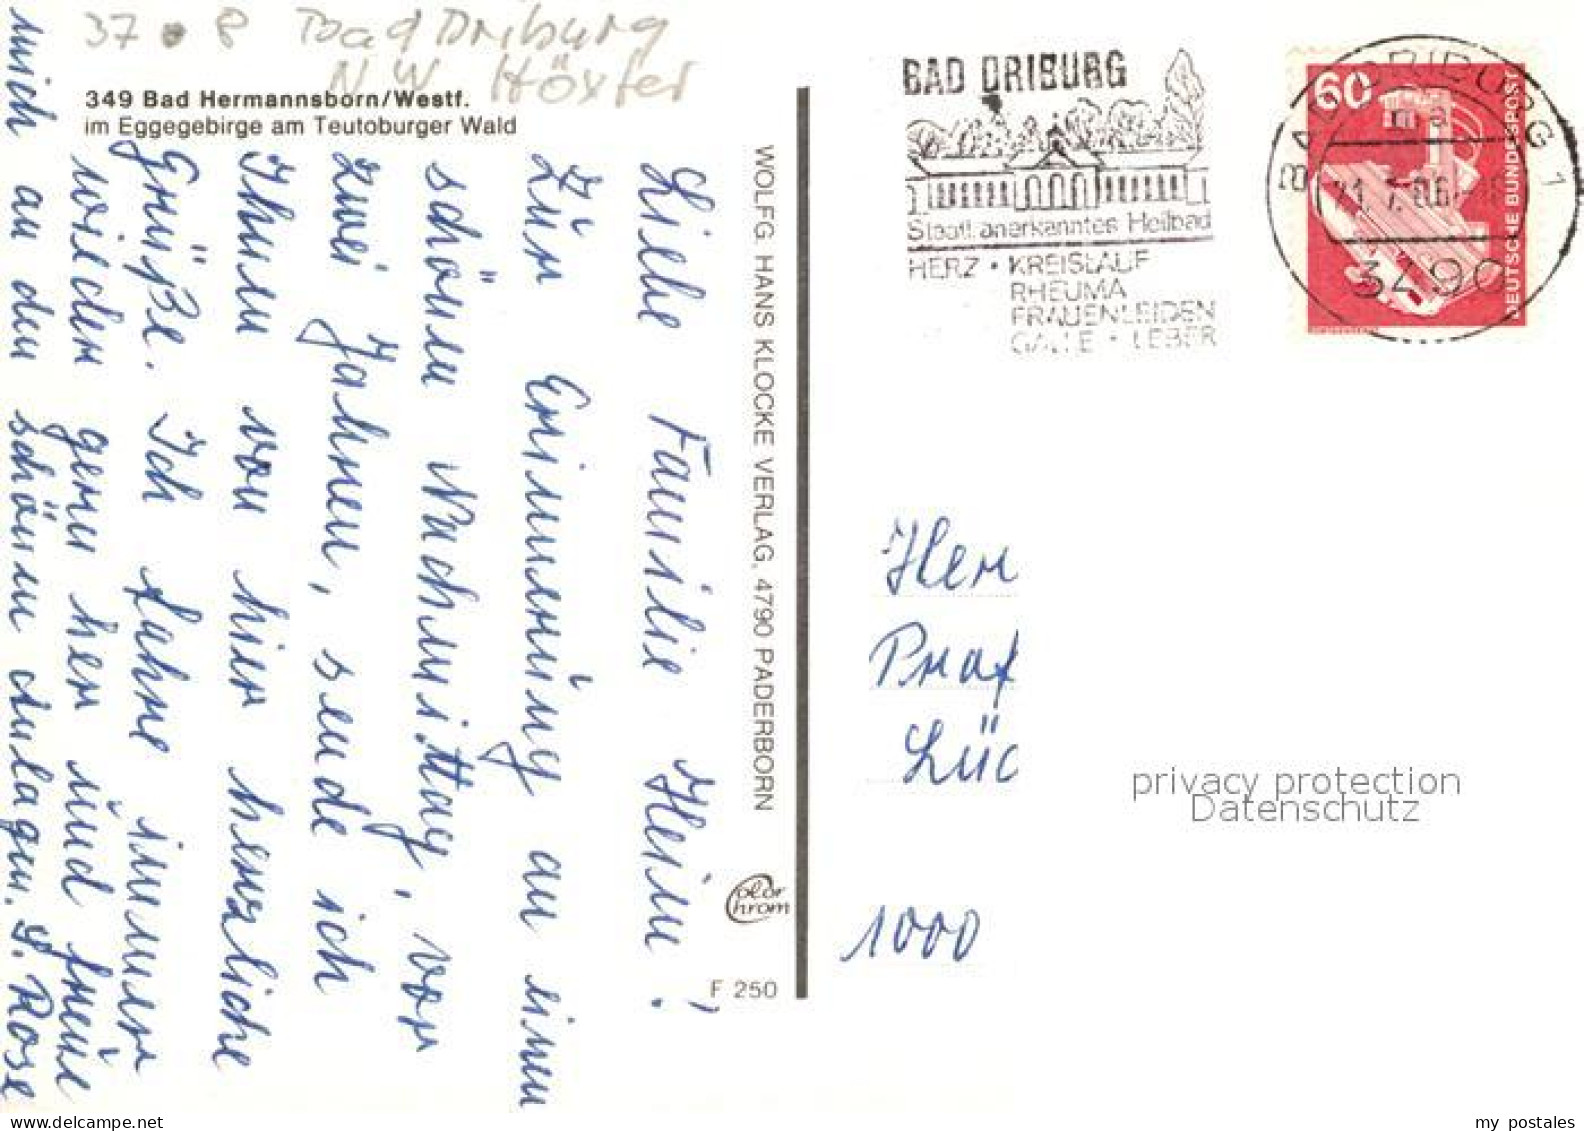 37 8 Bad Driburg
N.W. Höxter
349 Bad Hermannsborn/Westf.
im Eggegebirge am Teutoburger Wald
Liebe Familie Hein!
Zur Erinnerung an einen
schönen Nachmittag, vor
zwei Jahren, sende ich
Ihnen von hier herzliche
Grüße. Ich fahre immer
wieder gern her und freue
mich an den schönen Anlagen. I. Rose
WOLFG. HANS KLOCKE VERLAG, 4790 PADERBORN
Color
Chrom
F 250
BAD DRIBURG
Staatl. anerkanntes Heilbad
HERZ • KREISLAUF
RHEUMA
FRAUENLEIDEN
GALLE • LEBER
60
DEUTSCHE BUNDESPOST
BAD DRIBURG 1
ma
3490
Herr
Prof
Lüc
1000
privacy protection
Datenschutz
my postales